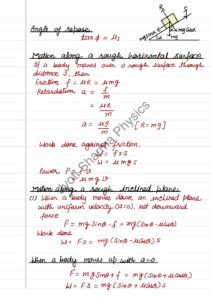 Angle of repose
tan ϕ = μs
Motion along a rough horizontal surface
If a body moves over a rough surface through
distance S, then
Friction f = μR = μmg
Retardation a = f/m
= μR/m
a = μg/m [R = mg]
Work done against friction.
W = f × S
W = μmg S
Power P = f × v
μmg v
Motion along a rough inclined plane.
(1) When a body moves down an inclined plane
with uniform velocity (a=0), net downward
force
F = mg sinθ - f = mg (sinθ - μcosθ)
Work done
W = FS = mg (sinθ - μcosθ) S
When a body moves up with a=0
F = mg sinθ + f = mg (sinθ + μcosθ)
W = FS = mg (sinθ + μcosθ) S